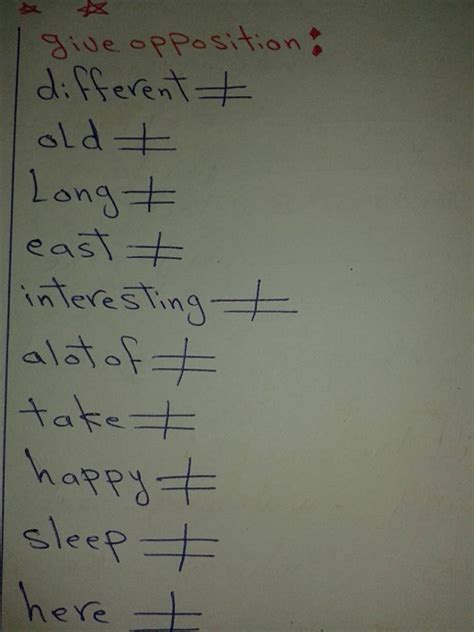 give opposition:
different ≠
old ≠
Long ≠
east ≠
interesting ≠
alot of ≠
take ≠
happy ≠
sleep ≠
here ≠